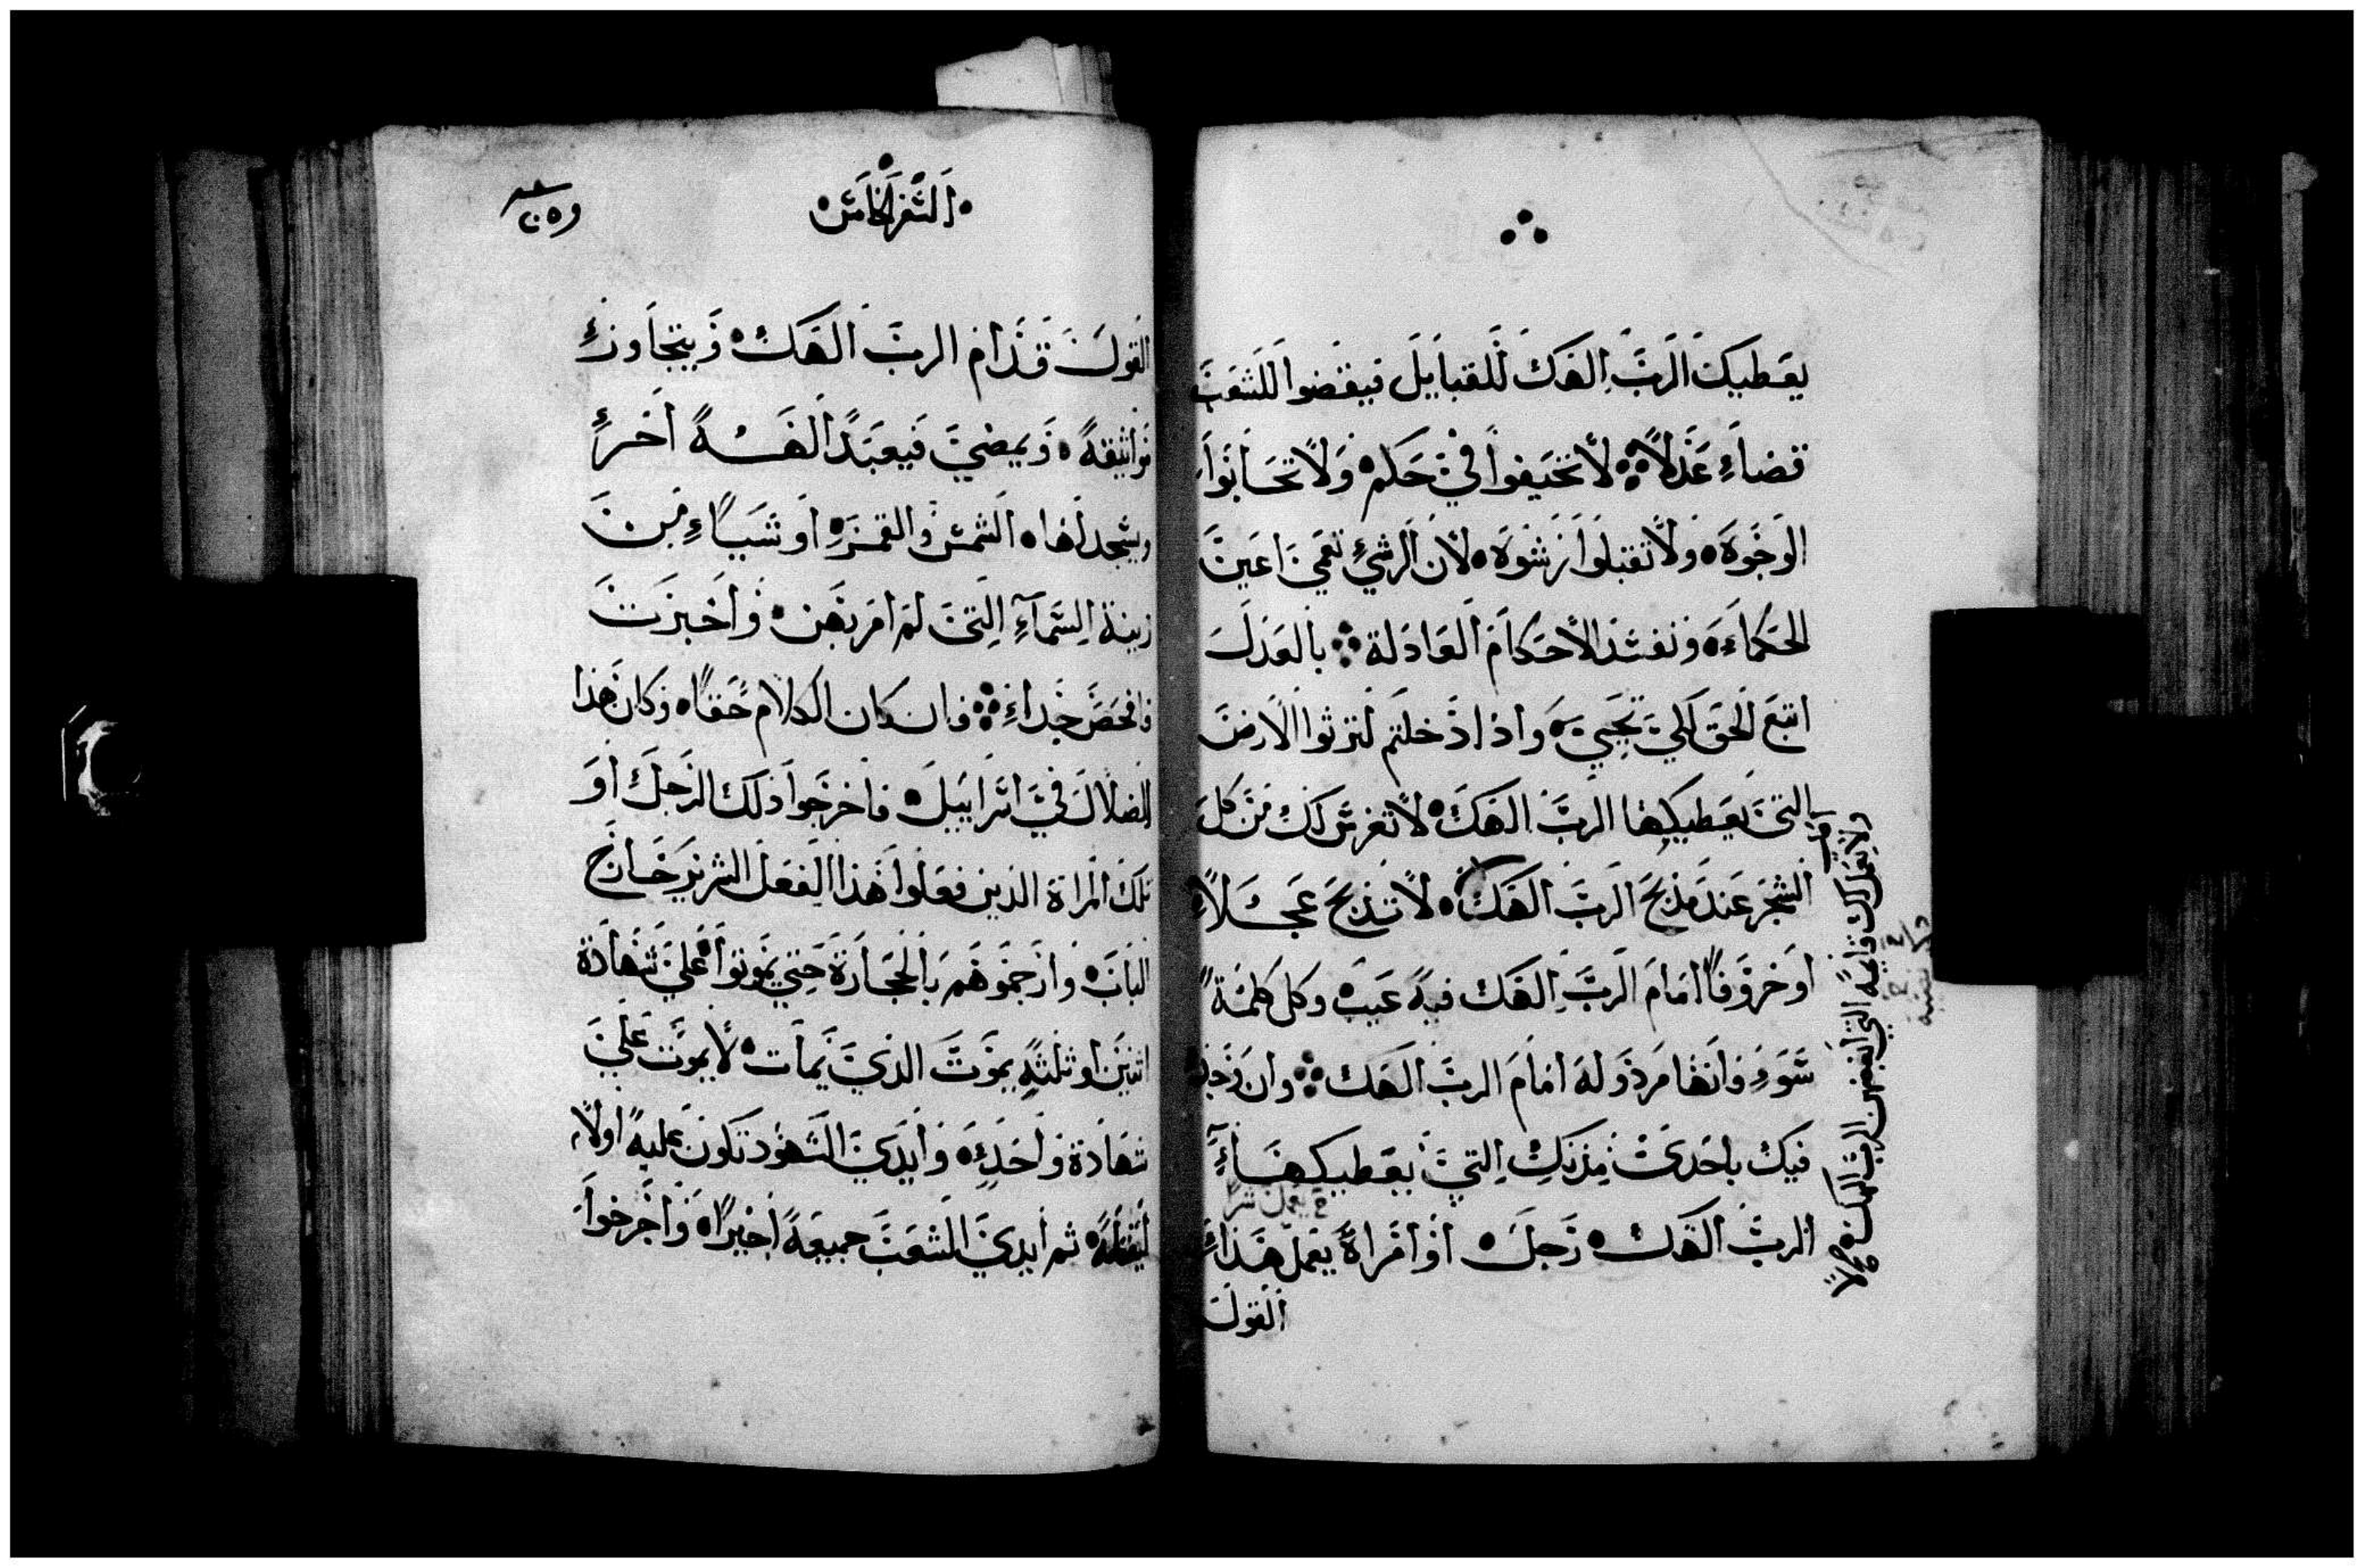 يعطيك الرب الهك للقبايل فيقضوا للشعب
قضاء عدلا لا تحيفوا في حكم ولا تحابوا
الوجوه ولا تقبلوا رشوه لان الرشي تعمي اعين
الحكماء وتفسد الاحكام العادلة بالعدل
اتبع الحق لكي تحيي واذا دخلتم لترثوا الارض
التي يعطيكها الرب الهك لا تغرس لك من كل
الشجر عند مذبح الرب الهك لا تذبح عجلا
او خروفا امام الرب الهك فيه عيب وكل كلمة
سوء فانها مرذوله امام الرب الهك وان وجد
فيك باحدي مدنك التي يعطيكها
الرب الهك رجل او امراة يعمل هذا
القول
ولا تعمل لك قايمه التي ابغضهن الرب الهك
السفر الخامس
القول قدام الرب الهك ويتجاوز
مواثيقه ويمضي فيعبد الهه اخر
ويسجد لها الشمس والقمر او شياء من
زينة السماء التي لم امر بهن واخبرت
فافحص جدا فان كان الكلام حقا وكان هذا
الضلال في اسراييل فاخرجوا ذلك الرجل او
تلك المراة الذين فعلوا هذا الفعل الشرير خارج
الباب وارجموهم بالحجارة حتي يموتوا علي شهادة
اثنين او ثلثه يموت الذي يمات لا يموت علي
شهادة واحده وايدي الشهود تكون عليه اولا
ليقتله ثم ايدي الشعب جميعه اخيرا واخرجوا